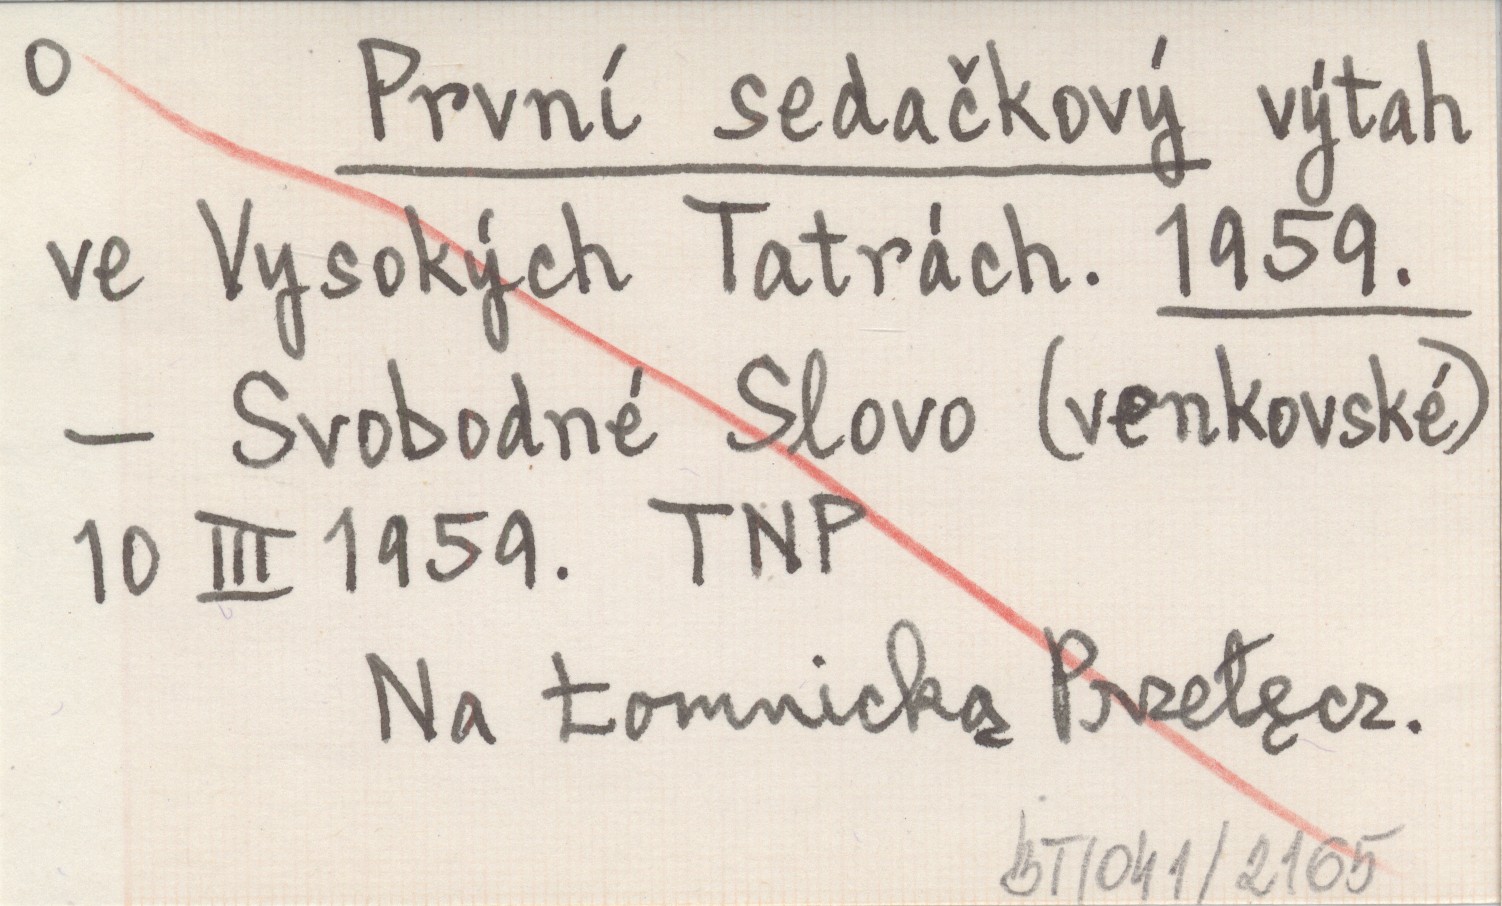 O První sedačkový výtah
ve Vysokých Tatrách. 1959.
— Svobodné Slovo (venkovské)
10 III 1959. TNP
Na Łomnicką Przełęcz.
BT/041/2165